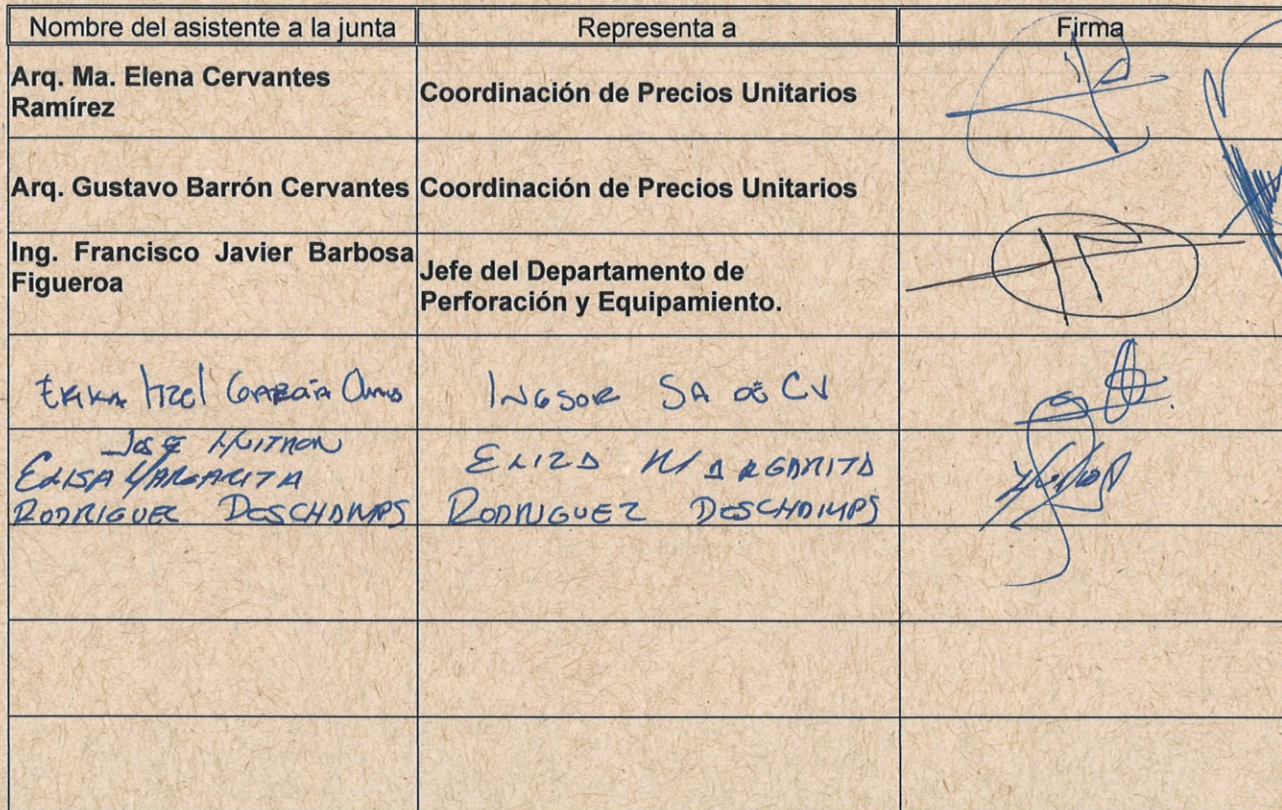 Nombre del asistente a la junta Representa a Firma
Arq. Ma. Elena Cervantes
Ramírez
Coordinación de Precios Unitarios
Arq. Gustavo Barrón Cervantes Coordinación de Precios Unitarios
Ing. Francisco Javier Barbosa
Figueroa
Jefe del Departamento de
Perforación y Equipamiento.
Erika Itzel García INGSOR SA DE CV
José
ELISA MARGARITA
RODRIGUEZ DESCHAMPS
ELIZA MARGARITA
RODRIGUEZ DESCHAMPS